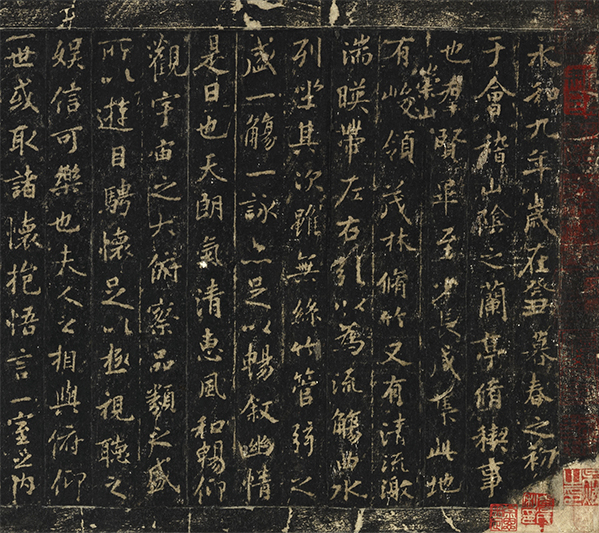 永和九年歲在癸丑暮春之初
于會稽山陰之蘭亭脩稧事
也羣賢畢至少長咸集此地
崇山
有峻領茂林脩竹又有清流激
湍暎帶左右引以為流觴曲水
列坐其次雖無絲竹管弦之
盛一觴一詠亦足以暢叙幽情
是日也天朗氣清惠風和暢仰
觀宇宙之大俯察品類之盛
所以遊目騁懷足以極視聽之
娛信可樂也夫人之相與俯仰
一世或取諸懷抱悟言一室之內